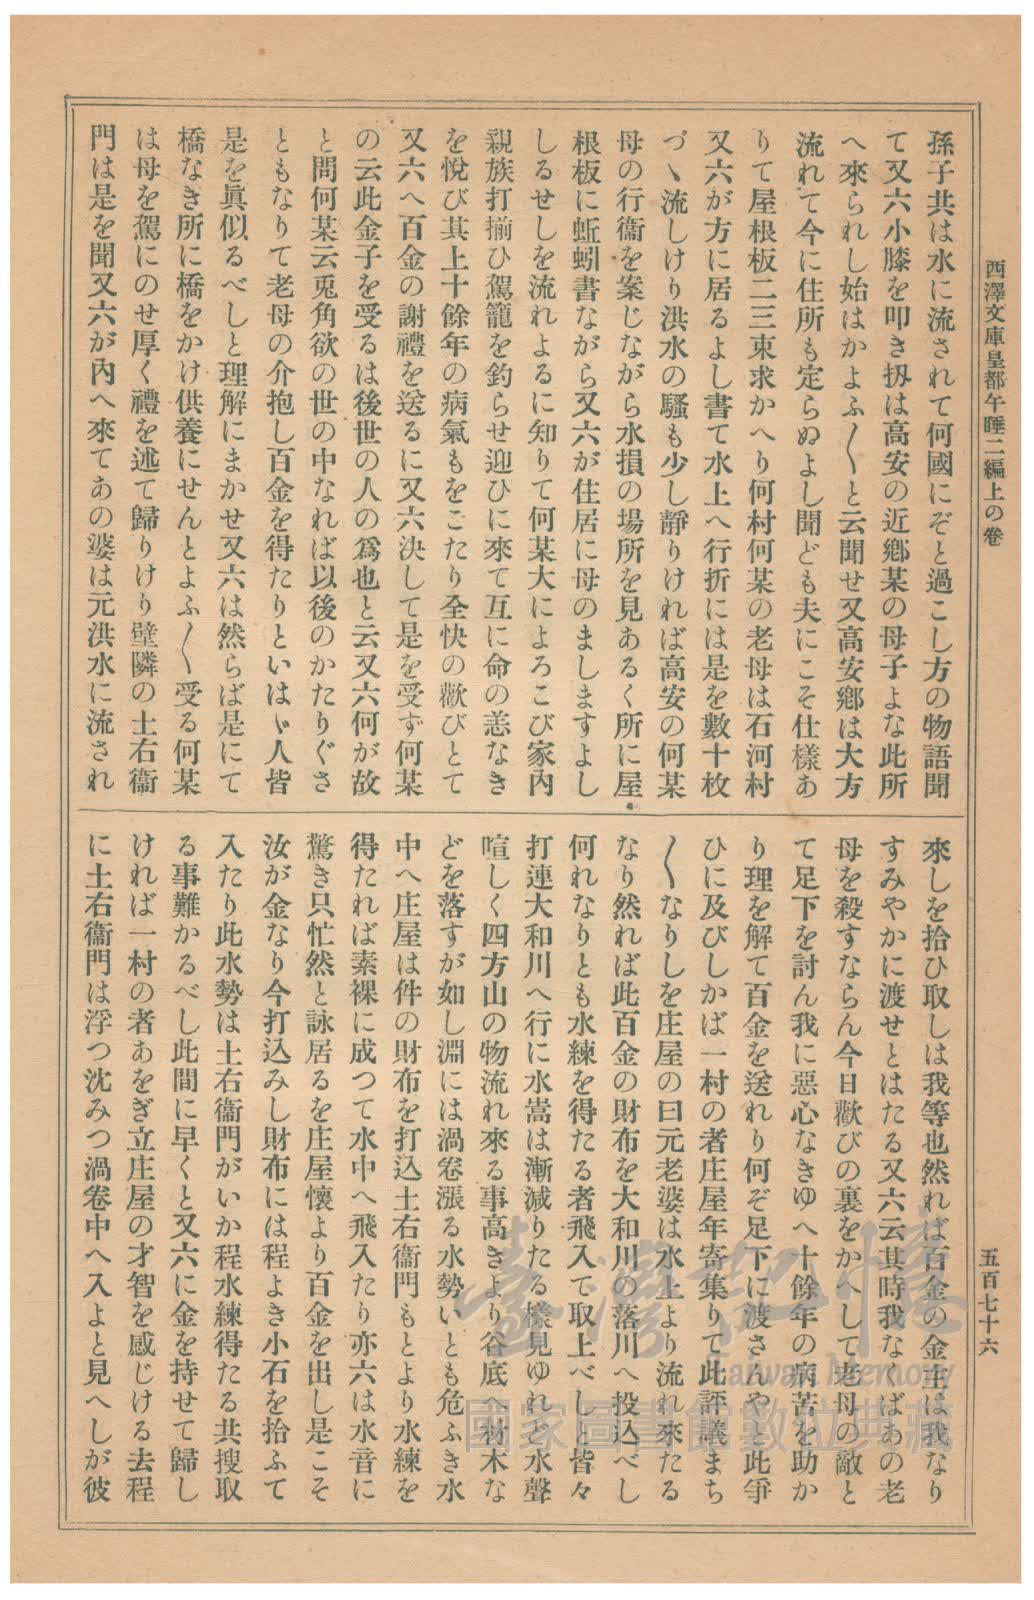 西澤文庫皇都午睡二編上の卷
五百七十六
孫子共は水に流されて何國にぞと過こし方の物語聞
て又六小膝を叩き扨は高安の近鄕某の母子よな此所
へ來られし始はかよふ〳〵と云聞せ又高安鄕は大方
流れて今に住所も定らぬよし聞ども夫にこそ仕樣あ
りて屋根板二三束求かへり何村何某の老母は石河村
又六が方に居るよし書て水上へ行折には是を數十枚
づゝ流しけり洪水の騷も少し靜りければ高安の何某
母の行衞を案じながら水損の場所を見あるく所に屋
根板に蚯蚓書ながら又六が住居に母のましますよし
しるせしを流れよるに知りて何某大によろこび家內
親族打揃ひ駕籠を釣らせ迎ひに來て互に命の恙なき
を悅び其上十餘年の病氣もをこたり全快の歡びとて
又六へ百金の謝禮を送るに又六決して是を受ず何某
の云此金子を受るは後世の人の爲也と云又六何が故
と問何某云兎角欲の世の中なれば以後のかたりぐさ
ともなりて老母の介抱し百金を得たりといはゞ人皆
是を眞似るべしと理解にまかせ又六は然らば是にて
橋なき所に橋をかけ供養にせんとよふ〳〵受る何某
は母を駕にのせ厚く禮を述て歸りけり壁隣の土右衞
門は是を聞又六が內へ來てあの婆は元洪水に流され
來しを拾ひ取しは我等也然れば百金の金主は我なり
すみやかに渡せとはたる又六云其時我なくばあの老
母を殺すならん今日歡びの裏をかへして老母の敵と
て足下を討ん我に惡心なきゆへ十餘年の病苦を助か
り理を解て百金を送れり何ぞ足下に渡さんやと此爭
ひに及びしかば一村の者庄屋年寄集りて此評議まち
〳〵なりしを庄屋の曰元老婆は水上より流れ來たる
なり然れば此百金の財布を大和川の落川へ投込べし
何れなりとも水練を得たる者飛入て取上べしと皆々
打連大和川へ行に水嵩は漸減りたる樣見ゆれど水聲
喧しく四方山の物流れ來る事高きより谷底へ材木な
どを落すが如し淵には渦卷漲る水勢いとも危ふき水
中へ庄屋は件の財布を打込土右衞門もとより水練を
得たれば素裸に成つて水中へ飛入たり亦六は水音に
驚き只忙然と詠居るを庄屋懷より百金を出し是こそ
汝が金なり今打込みし財布には程よき小石を拾ふて
入たり此水勢は土右衞門がいか程水練得たる共搜取
る事難かるべし此間に早くと又六に金を持せて歸し
ければ一村の者あをぎ立庄屋の才智を感じける去程
に土右衞門は浮つ沈みつ渦卷中へ入よと見へしが彼
臺灣記憶
Taiwan Memory
國家圖書館數位典藏